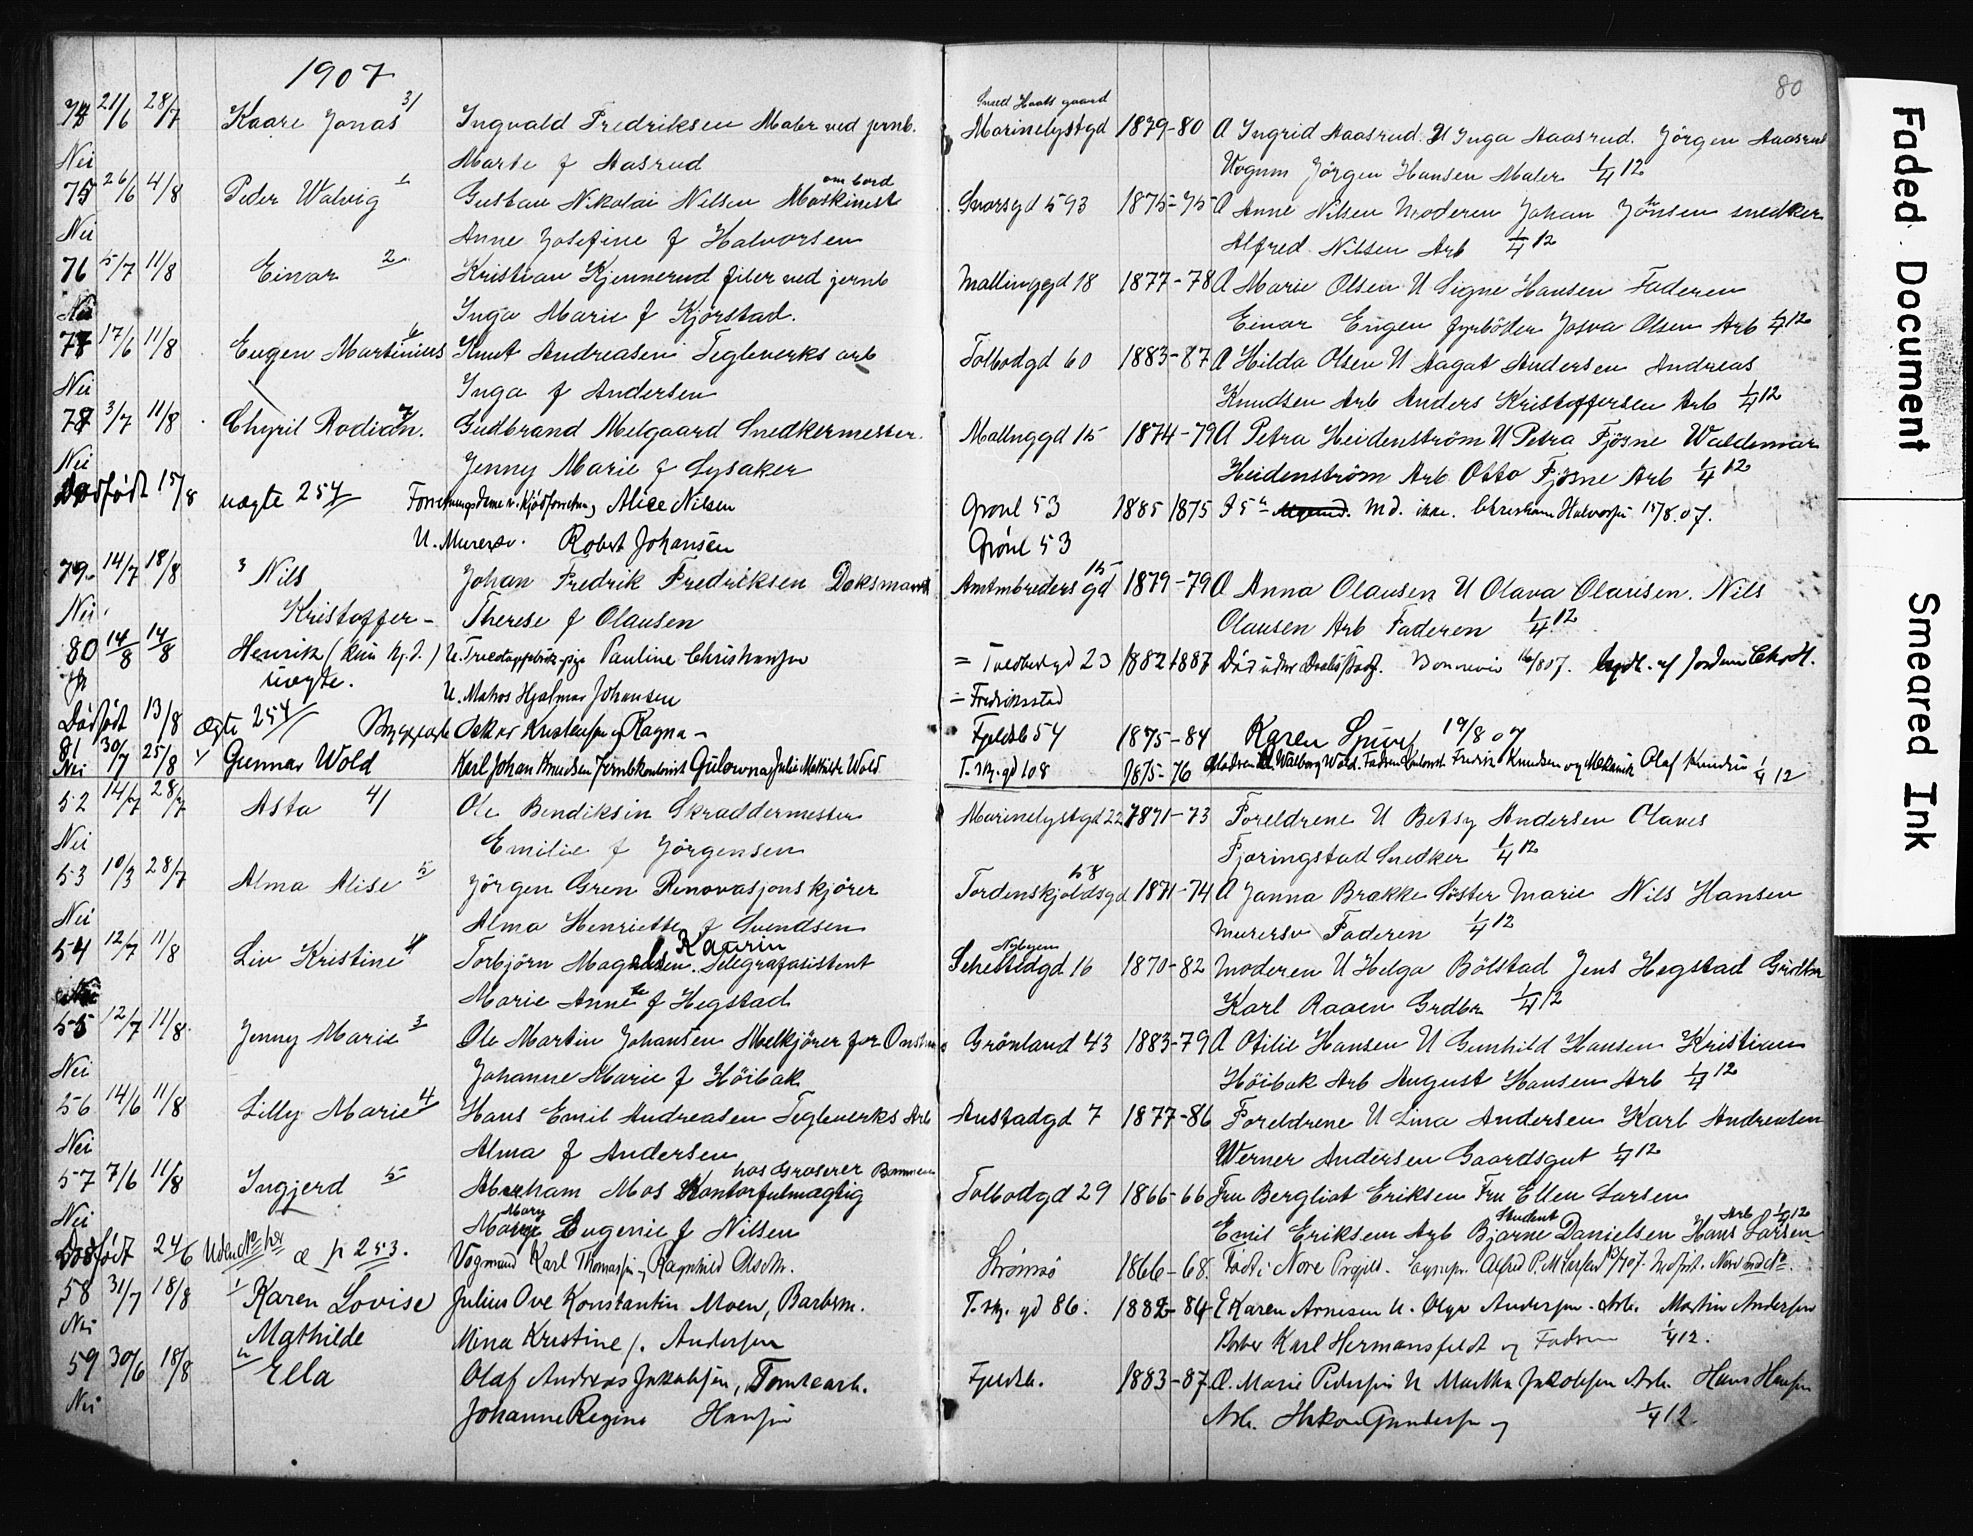 1907
80
Faded Document Smeared Ink
74 21/6 28/7 Kaare Jonas 3/ Ingvald Fredriksen Maler ved jernb. Marinelystgd 1879-80 A Ingrid Aasrud. U Inga Aasrud. Jörgen Aasrud
Nei Marte f Aasrud Jörgen Hansen Maler 1/4 12
om bord
75 26/6 4/8 Peder Walvig Gustav Nikolai Nilsen Maskinist Svarsgd 593 1875-75 A Anne Nilsen Moderen Johan Jönsen snedker
Nei Anne Josefine f Halvorsen Alfred Nilsen Arb 1/4 12
76 5/7 11/8 Einar 2 Kristian Kjennerud filer ved jernb Mallinggd 18 1877-78 A Marie Olsen U Signe Hansen Faderen
Nei Inga Marie f Kjörstad. Einar Eugen fyrböder Josva Olsen Arb 1/4 12
77 17/6 11/8 Eugen Martinius 6 Knut Andreasen Teglverks arb Tolbodgd 60 1883-87 A Hilda Olsen U Aagat Andersen Andreas
Nei Inga f Andersen Knudsen Arb Anders Kristoffersen Arb 1/4 12
78 3/7 11/8 Chyril Rodian. 7 Gudbrand Melgaard Snedkermester. Mallinggd 15 1874-79 A Petra Heidenström U Petra Fjösne Waldemar
Nei Jenny Marie f Lysaker Heidenström Arb Otto Fjösne Arb 1/4 12
Dödfödt 15/8 uægte 254 Alice Nilsen Grönl 53 1885 1875 Md. ikke. Halvorsen 15/8.07.
U. Murersv. Robert Johansen Grönl 53
79. 14/7 18/8 3 Nils Johan Fredrik Fredriksen Doksmand 15 1879-79 A Anna Olausen U Olava Olausen. Nils
Nei Kristoffer - Therese f Olausen Olausen Arb Faderen 1/4 12
80 14/8 14/8 Henrik Pauline Christiansen = Toldbodgd 23 1882 1887 16/8 07.
uægte. U. Matros Hjalmar Johansen = Fredriksstad
Dödfödt 13/8 Ægte 254 Oskar Kristensen og Ragna - Fjeldsb 54 1875-84 Karen 19/8 07
81 30/7 25/8 Gunnar Wold Karl Johan Knudsen Jernbkontorist Gulowna Julie Mathilde Wold T. skj. gd 108 1875-76 Walborg Wold. Fredrik Knudsen og Mekanik Olaf Knudsen 1/4 12
Nei
52 14/7 28/7 Asta 4/ Ole Bendiksen Skræddermester Marinelystgd 22 1871-73 Foreldrene U Betsy Andersen Olaves
Nei Emilie f Jörgensen Fjæringstad Snedker 1/4 12
53 10/3 28/7 Alma Alise 5 Jörgen Gren Renovasjonskjörer Tordenskjoldsgd 58 1871-74 A Janna Brakke Söster Marie Nils Hansen
Nei Alma Henriette f Svendsen Murersv Faderen 1/4 12
Kaarin
54 12/7 11/8 Liv Kristine 4 Torbjörn Magnussen. Telegrafasistent Nybyen Schestedgd 16 1870-82 Moderen U Helga Bölstad Jens Hegstad Grdbr
Marie Anne f Hegstad Karl Raaen Grdbr 1/4 12
55 12/7 11/8 Jenny Marie 3 Ole Martin Johansen Melkjörer for Grönland 43 1883-79 A Otilie Hansen U Gunhild Hansen Kristian
Nei Johanne Marie f Höibak Höibak Arb August Hansen Arb 1/4 12
56 14/6 11/8 Lilly Marie 4 Hans Emil Andreasen Teglverks Arb Austadgd 7 1877-86 Foreldrene U Lina Andersen Karl Andreasen
Nei Alma f Andersen Werner Andersen Gaardsgut 1/4 12
hos Grosserer
57 7/6 11/8 Ingjerd 5 Abraham Mos Kontorfulmægtig Tolbodgd 29 1866-66 Fru Bergliot Eriksen Fru Ellen Larsen
Nei Mary Eugenie f Nilsen Emil Eriksen Arb Student Bjarne Danielsen Arb Hans Larsen 1/4 12
Dödfödt 24/6 Uden No. her æ p 253. Vogmand Karl Thomassen, Ragnhild Olsdtr. Strömsö 1866-68. Födt i Nore Prgjeld.
58 31/7 18/8 Karen Lovise Julius Ove Konstantin Moen, Barberm. T. skj. gd 86. 1882-84 E Karen Arnesen U. Olga Andersen. Arb. Martin Andersen
Nei Mathilde Mina Kristine f. Andersen Barber Karl Hermansfeldt og Fadren 1/4 12.
59 30/6 18/8 Ella Olaf Andreas Jakobsen, Tomtearb. Fjeldsb. 1883-87 A. Marie Pedersen U Martha Jakobsen Arb. Hans Hansen
Nei Johanne Regine Hansen Arb. Hakon Gundersen og 1/4 12